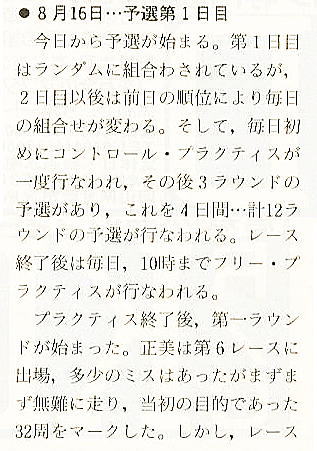 ● 8月16日…予選第1日目
今日から予選が始まる。第1日目
はランダムに組合わされているが,
2日目以後は前日の順位により毎日
の組合せが変わる。そして, 毎日初
めにコントロール・プラクティスが
一度行なわれ, その後3ラウンドの
予選があり, これを4日間…計12ラ
ウンドの予選が行なわれる。レース
終了後は毎日, 10時までフリー・プ
ラクティスが行なわれる。
プラクティス終了後, 第一ラウン
ドが始まった。正美は第6レースに
出場, 多少のミスはあったがまずま
ず無難に走り, 当初の目的であった
32周をマークした。しかし, レース